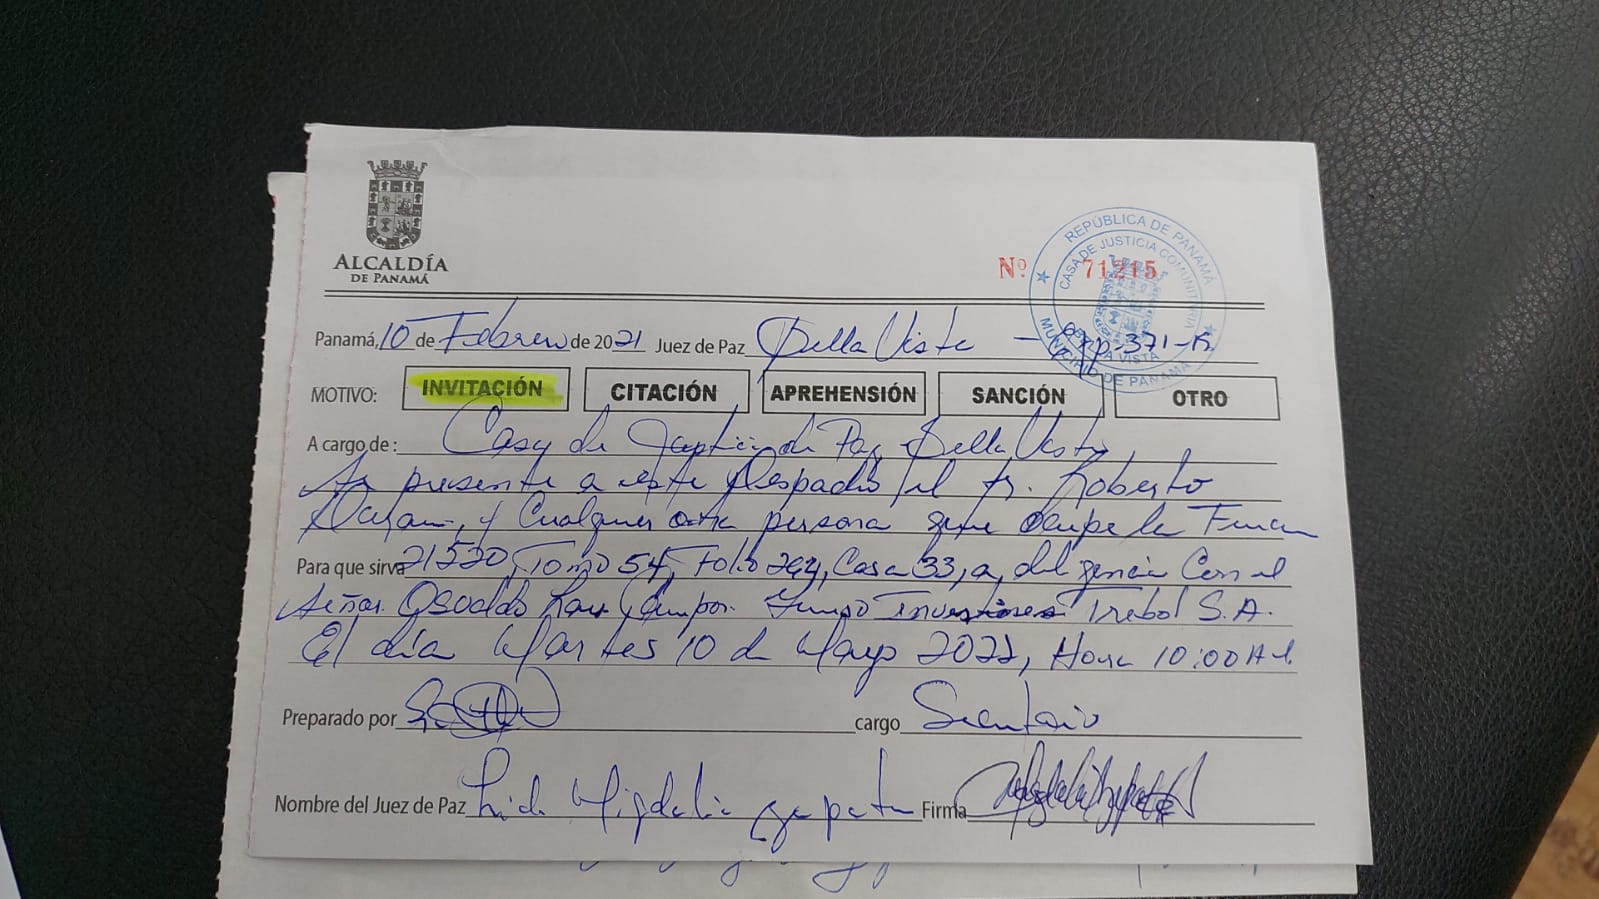 ALCALDÍA
DE PANAMÁ
Nº 71215
REPÚBLICA DE PANAMÁ
CASA DE JUSTICIA COMUNITARIA
BELLA VISTA
MUNICIPIO DE PANAMÁ
Panamá, 10 de Febrero de 2021 Juez de Paz Bella Vista - Exp-371-R
MOTIVO: INVITACIÓN CITACIÓN APREHENSIÓN SANCIÓN OTRO
A cargo de: Casa de Justicia de Paz, Bella Vista,
presente a este Despacho el Sr. Roberto
y Cualquier otra persona que ocupe la Finca
Para que sirva 21520, Tomo 54, Folio Casa 33, a diligencia Con el
Señor Osvaldo Inversiones Trebol S.A.
El día Martes 10 de Mayo 2022, Hora 10:00 A.M.
Preparado por cargo Secretario
Nombre del Juez de Paz Licda Migdalia Zapata Firma